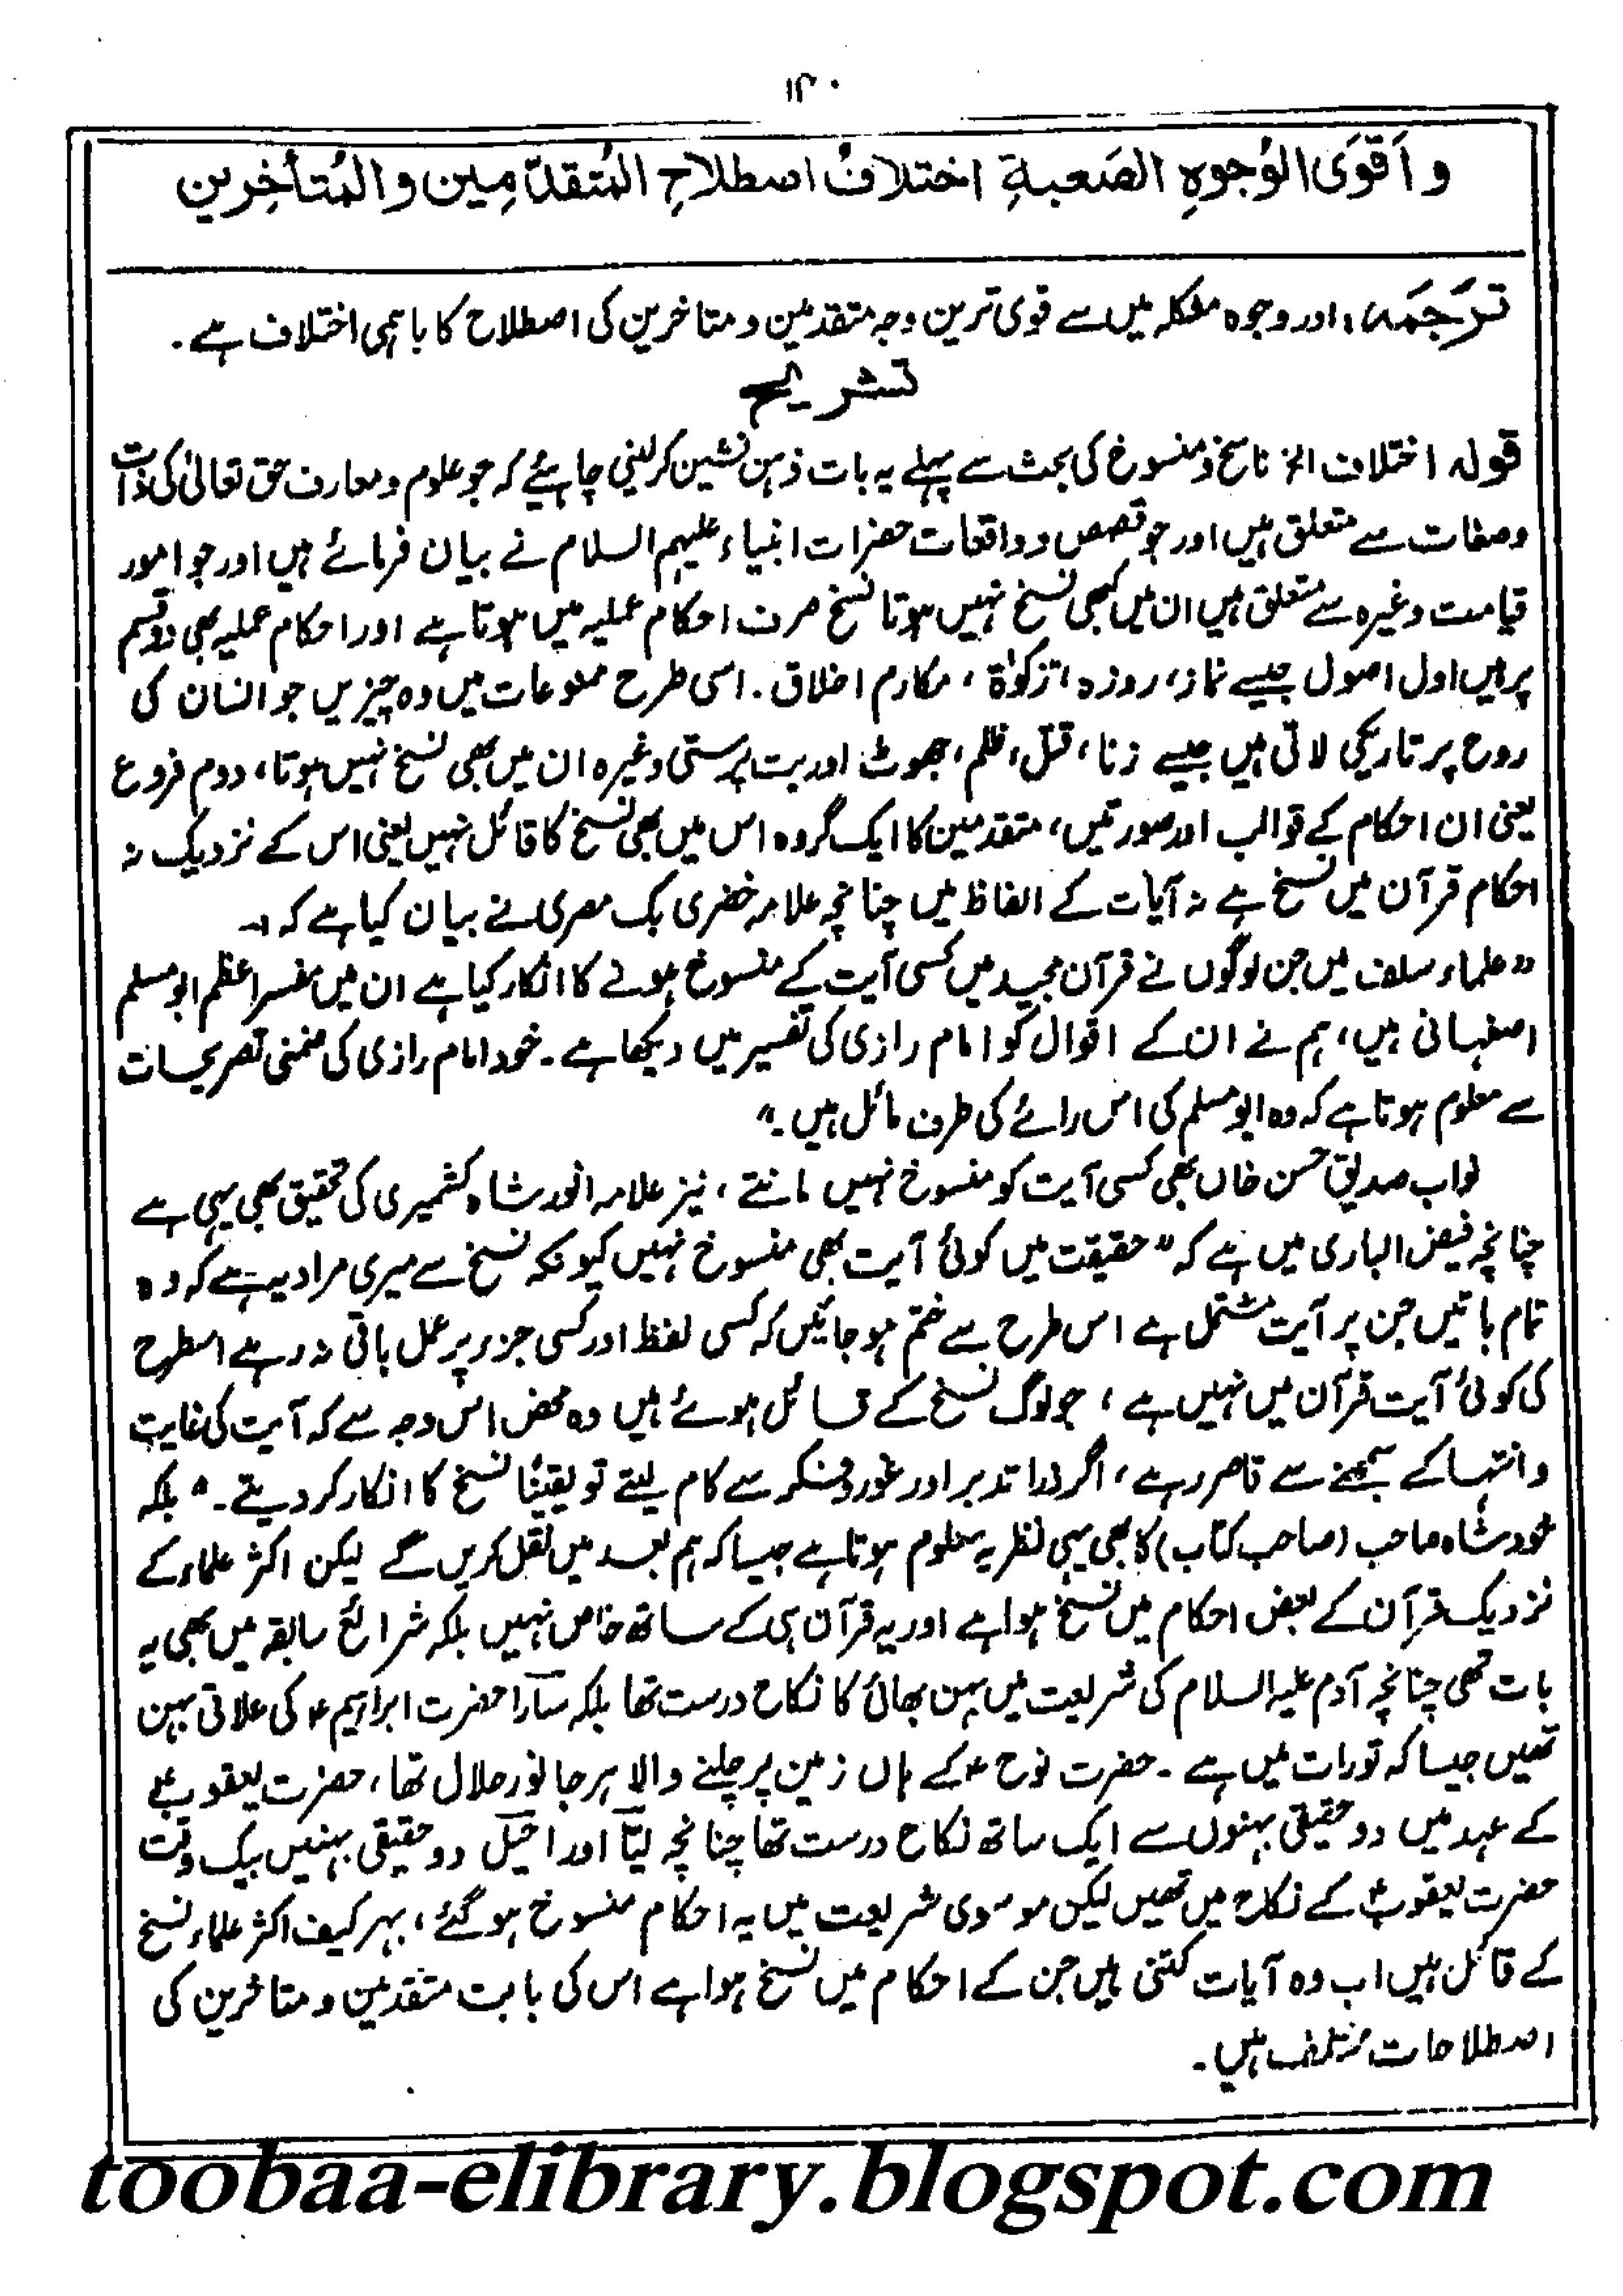 ۱۴۰
وَاَقوَی الوُجوہِ الصَعبةِ اختلافُ اصطلاحِ المُتقدّمِین والمُتأخِرین
تَرجَمَہ، اور وجوہ مشکلہ میں سے قوی ترین وجہ متقدمین و متاخرین کی اصطلاح کا باہمی اختلاف ہے۔
تشریح
قولہ اختلاف الخ ناسخ و منسوخ کی بحث سے پہلے یہ بات ذہن نشین کرلینی چاہئے کہ جو علوم و معارف حق تعالیٰ کی ذات
وصفات سے متعلق ہیں اور جو قصص و واقعات حضرات انبیاء علیہم السلام نے بیان فرمائے ہیں اور جو امور
قیامت وغیرہ سے متعلق ہیں ان میں کبھی نسخ نہیں ہوتا نسخ صرف احکام عملیہ میں ہوتا ہے اور احکام عملیہ بھی دو قسم
پر ہیں اول اصول جیسے نماز، روزہ، زکوٰۃ، مکارم اخلاق۔ اسی طرح ممنوعات میں وہ چیزیں جو انسان کی
روح پر تاریکی لاتی ہیں جیسے زنا، قتل، ظلم، جھوٹ اور بت پرستی وغیرہ ان میں بھی نسخ نہیں ہوتا، دوم فروع
یعنی ان احکام کے قوالب اور صورتیں، متقدمین کا ایک گروہ اس میں بھی نسخ کا قائل نہیں یعنی اس کے نزدیک نہ
احکام قرآن میں نسخ ہے نہ آیات کے الفاظ میں چنانچہ علامہ خضری بک مصری نے بیان کیا ہے کہ :۔
"علماء سلف میں جن لوگوں نے قرآن مجید میں کسی آیت کے منسوخ ہونے کا انکار کیا ہے ان میں مفسر اعظم ابو مسلم
اصفہانی ہیں، ہم نے ان کے اقوال کو امام رازی کی تفسیر میں دیکھا ہے۔ خود امام رازی کی ضمنی تصریحات
سے معلوم ہوتا ہے کہ وہ ابو مسلم کی اس رائے کی طرف مائل ہیں۔"
نواب صدیق حسن خاں بھی کسی آیت کو منسوخ نہیں مانتے، نیز علامہ انور شاہ کشمیری کی تحقیق بھی یہی ہے
چنانچہ فیض الباری میں ہے کہ "حقیقت میں کوئی آیت بھی منسوخ نہیں کیونکہ نسخ سے میری مراد یہ ہے کہ وہ
تمام باتیں جن پر آیت مشتمل ہے اس طرح سے ختم ہو جائیں کہ کسی لفظ اور کسی جزر پر عمل باقی نہ رہے اسطرح
کی کوئی آیت قرآن میں نہیں ہے، جو لوگ نسخ کے قائل ہوئے ہیں وہ محض اس وجہ سے کہ آیت کی غایت
وانتہا کے سمجھنے سے قاصر رہے، اگر ذرا تدبر اور غور و فکر سے کام لیتے تو یقیناً نسخ کا انکار کر دیتے۔" بلکہ
خود شاہ صاحب (صاحب کتاب) کا بھی یہی نظریہ معلوم ہوتا ہے جیسا کہ ہم بعد میں نقل کریں گے لیکن اکثر علماء کے
نزدیک قرآن کے بعض احکام میں نسخ ہوا ہے اور یہ قرآن ہی کے ساتھ خاص نہیں بلکہ شرائع سابقہ میں بھی یہ
بات تھی چنانچہ آدم علیہ السلام کی شریعت میں بہن بھائی کا نکاح درست تھا بلکہ سارا حضرت ابراہیم ؑ کی علاتی بہن
تھیں جیسا کہ تورات میں ہے۔ حضرت نوح ؑ کے ہاں زمین پر چلنے والا ہر جانور حلال تھا، حضرت یعقوبؑ
کے عہد میں دو حقیقی بہنوں سے ایک ساتھ نکاح درست تھا چنانچہ لیّا اور اخیل دو حقیقی بہنیں بیک وقت
حضرت یعقوبؑ کے نکاح میں تھیں لیکن موسوی شریعت میں یہ احکام منسوخ ہو گئے، بہر کیف اکثر علماء نسخ
کے قائل ہیں اب وہ آیات کتنی ہیں جن کے احکام میں نسخ ہوا ہے اس کی بابت متقدمین و متاخرین کی
اصطلاحات مختلف ہیں۔
toobaa-elibrary.blogspot.com